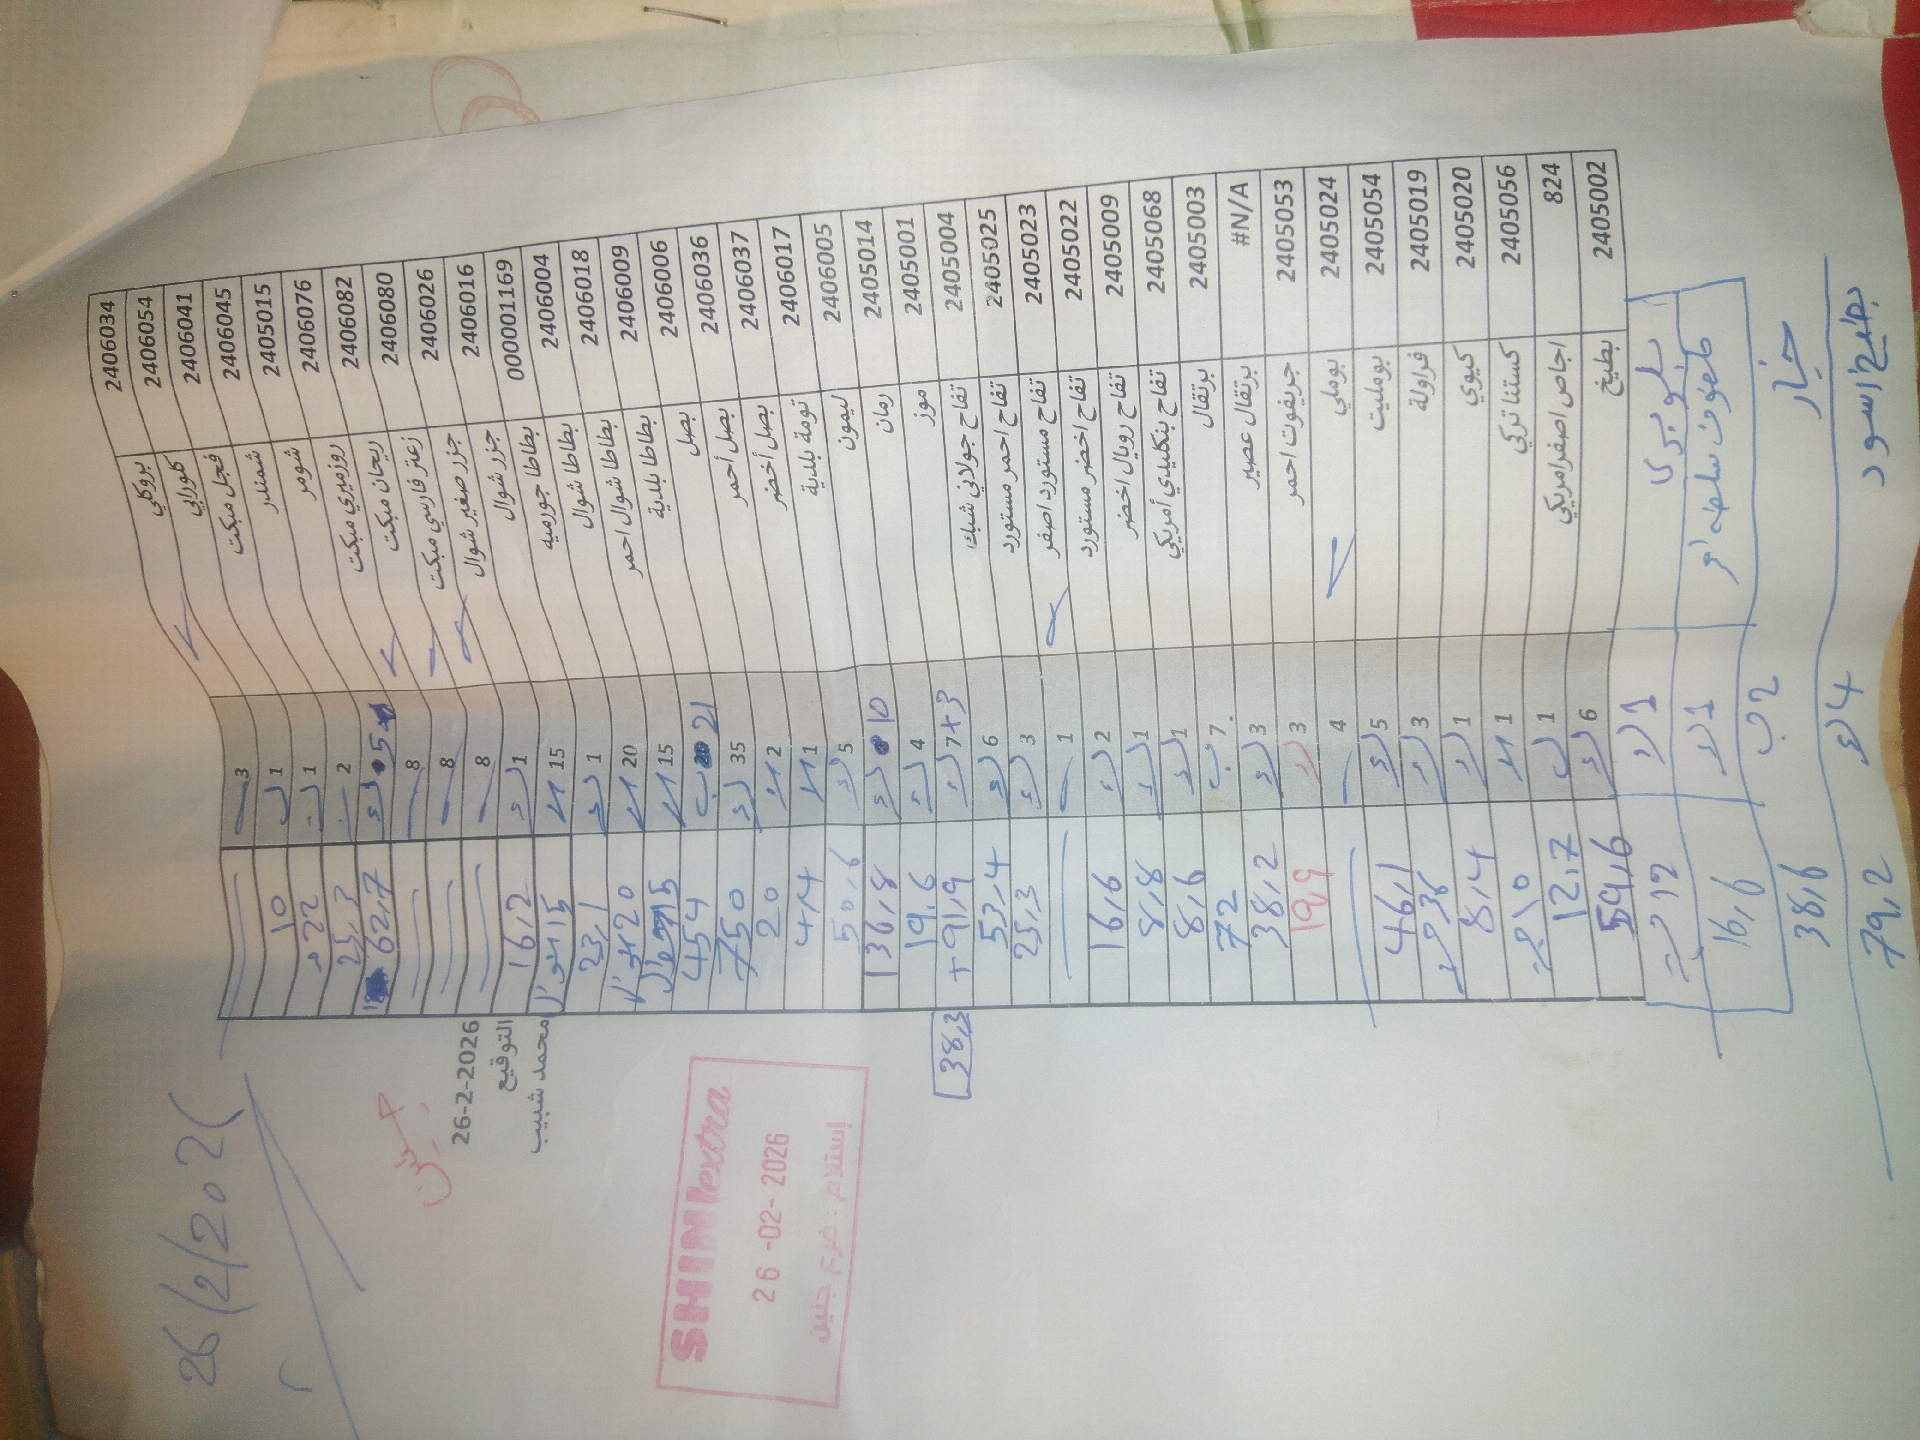 2406034 بروكلي 3
2406054 كلورابي 1 10
2406041 فجل مبكت 1 22
2406045 شمندر 2 25,3
2405015 شومر 5 62,7
2406076 روزميري مبكت 8
2406082 ريحان مبكت 8
2406080 زعتر فارسي مبكت 8
2406026 جزر صغير شوال 1 16,2
2406016 جزر شوال 15 15
000001169 بطاطا جورميه 1 23,1
2406004 بطاطا شوال 20 20
2406018 بطاطا شوال احمر 15 15
2406009 بطاطا بلدية 21 454
2406006 بصل 35 750
2406036 بصل أحمر 2 20
2406037 بصل أخضر 1 4,4
2406017 تومة بلدية 5 50,6
2406005 ليمون 10 136,8
2405014 رمان 4 19,6
2405001 موز 7+3 +91,9 38,3
2405004 تفاح جولاني شباك 6 53,4
2405025 تفاح احمر مستورد 3 25,3
2405023 تفاح مستورد اصفر 1
2405022 تفاح اخضر مستورد 2 16,6
2405009 تفاح رويال اخضر 1 8,8
2405068 تفاح بنكليدي أمريكي 1 8,6
2405003 برتقال 7 72
#N/A برتقال عصير 3 38,2
2405053 جريفوت احمر 3 19,9
2405024 بوملي 4
2405054 بومليت 5 46,1
2405019 فراولة 3 36
2405020 كيوي 1 8,4
2405056 كستنا تركي 1
824 اجاص اصفر امريكي 1 12,7
2405002 بطيخ 6 59,6
1 12
1 16,6
خيار 2 38,6
بطيخ اسود 4 79,2
26-2-2026
التوقيع
محمد شبيب
SHINIextra
26 -02- 2026
إستلام : فرع جنين
26/2/202